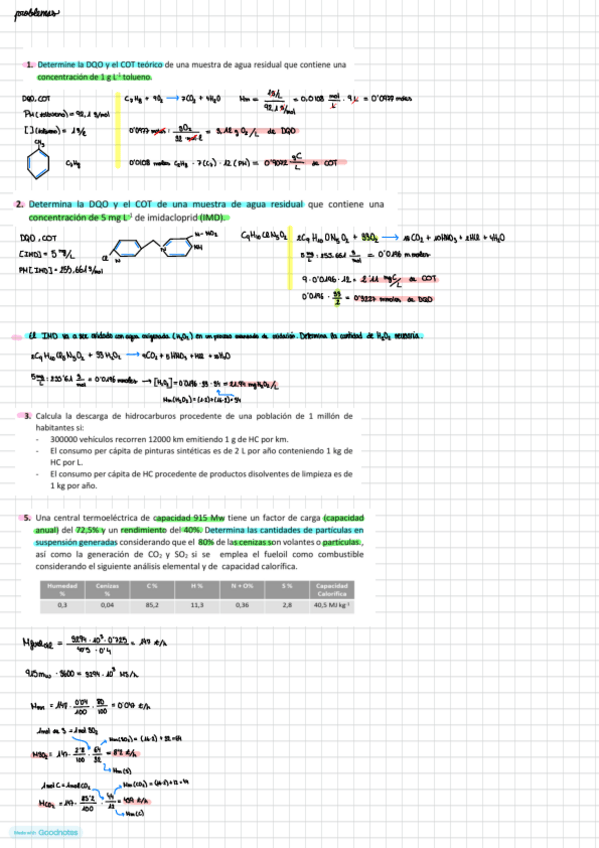 problemas
1. Determine la DQO y el COT teórico de una muestra de agua residual que contiene una
concentración de 1 g L⁻¹ tolueno.
DQO, COT
PM(tolueno)=92,1 g/mol
[](tolueno)= 1g/L
CH3
C7H8
C7H8 + 9O2 → 7CO2 + 4H2O
Mm = 1g/L / 92,1 g/mol = 0,0108 mol/L · 9 L = 0'0977 moles
0'0977 · gO2 / 32 = 3,12 g O2/L de DQO
0'0108 moles C7H8 · 7(C7) · 12 (PM) = 0'9072 gC/L de COT
2. Determina la DQO y el COT de una muestra de agua residual que contiene una
concentración de 5 mg L⁻¹ de imidacloprid (IMD).
DQO, COT
[IMD] = 5 mg/L
PM[IMD] = 255,661 g/mol
N-NO2
NH
Cl
N
N
5 mg/L : 255.661 g/mol = 0'0196 mmoles
9 · 0'0196 · 12 = 2'11 mgC/L de COT
0'0196 · 33/2 = 0'3227 mmoles de DQO
El IMD va a ser oxidado con agua oxigenada (H2O2) en un proceso avanzado de oxidación. Determina la cantidad de H2O2 necesaria.
5 mg/L : 255'661 g/mol = 0'0196 mmoles → [H2O2] = 0'0196 · 33 · 34 = 21.94 mg H2O2/L
Mm(H2O2)=(1·2)+(16·2)=34
3. Calcula la descarga de hidrocarburos procedente de una población de 1 millón de
habitantes si:
- 300000 vehículos recorren 12000 km emitiendo 1 g de HC por km.
- El consumo per cápita de pinturas sintéticas es de 2 L por año conteniendo 1 kg de
HC por L.
- El consumo per cápita de HC procedente de productos disolventes de limpieza es de
1 kg por año.
5. Una central termoeléctrica de capacidad 915 Mw tiene un factor de carga (capacidad
anual) del 72,5% y un rendimiento del 40%. Determina las cantidades de partículas en
suspensión generadas considerando que el 80% de las cenizas son volantes o partículas,
así como la generación de CO2 y SO2 si se emplea el fueloil como combustible
considerando el siguiente análisis elemental y de capacidad calorífica.
Humedad % Cenizas % C % H % N + O% S % Capacidad Calorífica
0,3 0,04 85,2 11,3 0,36 2,8 40,5 MJ kg⁻¹
Mfueloil = 3294 · 10³ · 0'725 / 40'5 · 0'4 = 147 t/h
915mw · 3600 = 3294 · 10³ MJ/h
= 147 · 0'04/100 · 80/100 = 0'047 t/h
1mol de S = 1mol SO2
Mm(SO2) = (16·2) + 32 = 64
MSO2 = 147 · 2'8/100 · 64/32 = 8'2 t/h
Mm(S)
1mol C = 1mol CO2
Mm(CO2) = (16·2)+12 = 44
MCO2 = 147 · 85'2/100 · 44/12 = 459 t/h
Mm(C)
Made with Goodnotes